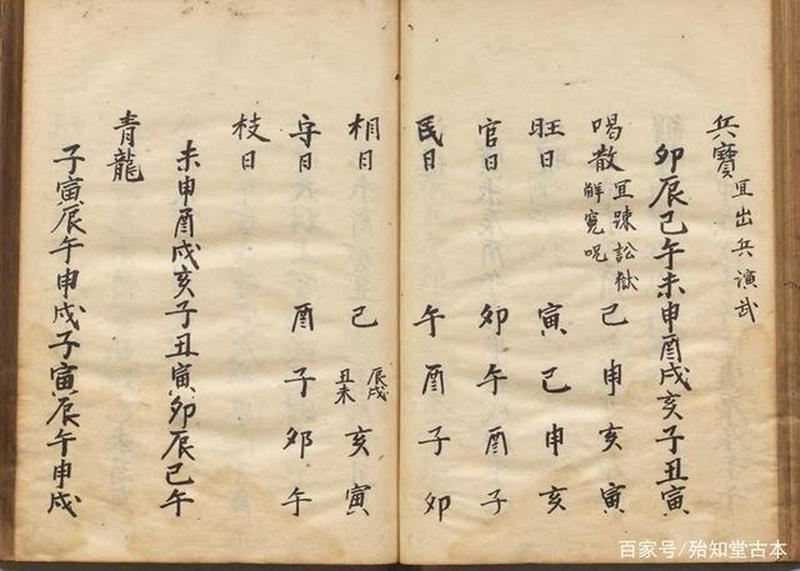 兵寶 宜出兵演武
卯辰巳午未申酉戌亥子丑寅
喝散 宜踈訟獄解寃呪 巳申亥寅
旺日 寅巳申亥
官日 卯午酉子
民日 午酉子卯
相日 巳 辰戌丑未 亥寅
守日 酉子卯午
枝日
未申酉戌亥子丑寅卯辰巳午
青龍
子寅辰午申戌子寅辰午申戌
百家号/殆知堂古本